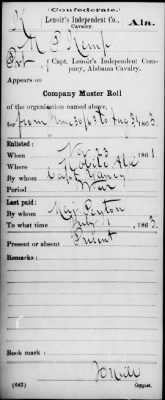 (Confederate.)
K Lenoir's Independent Co., Ala.
Cavalry.
M P Kemp
Pvt, Capt. Lenoir's Independent Com-
pany, Alabama Cavalry.
Appears on
Company Muster Roll
of the organization named above,
for from June 30 to Aug 31, 1863.
Enlisted:
When Nov 23, 1861
Where Ala
By whom Capt
Period War
Last paid:
By whom Maj. Peyton
To what time , 1863.
Present or absent Present
Remarks:
Book mark:
(642) Copyist.